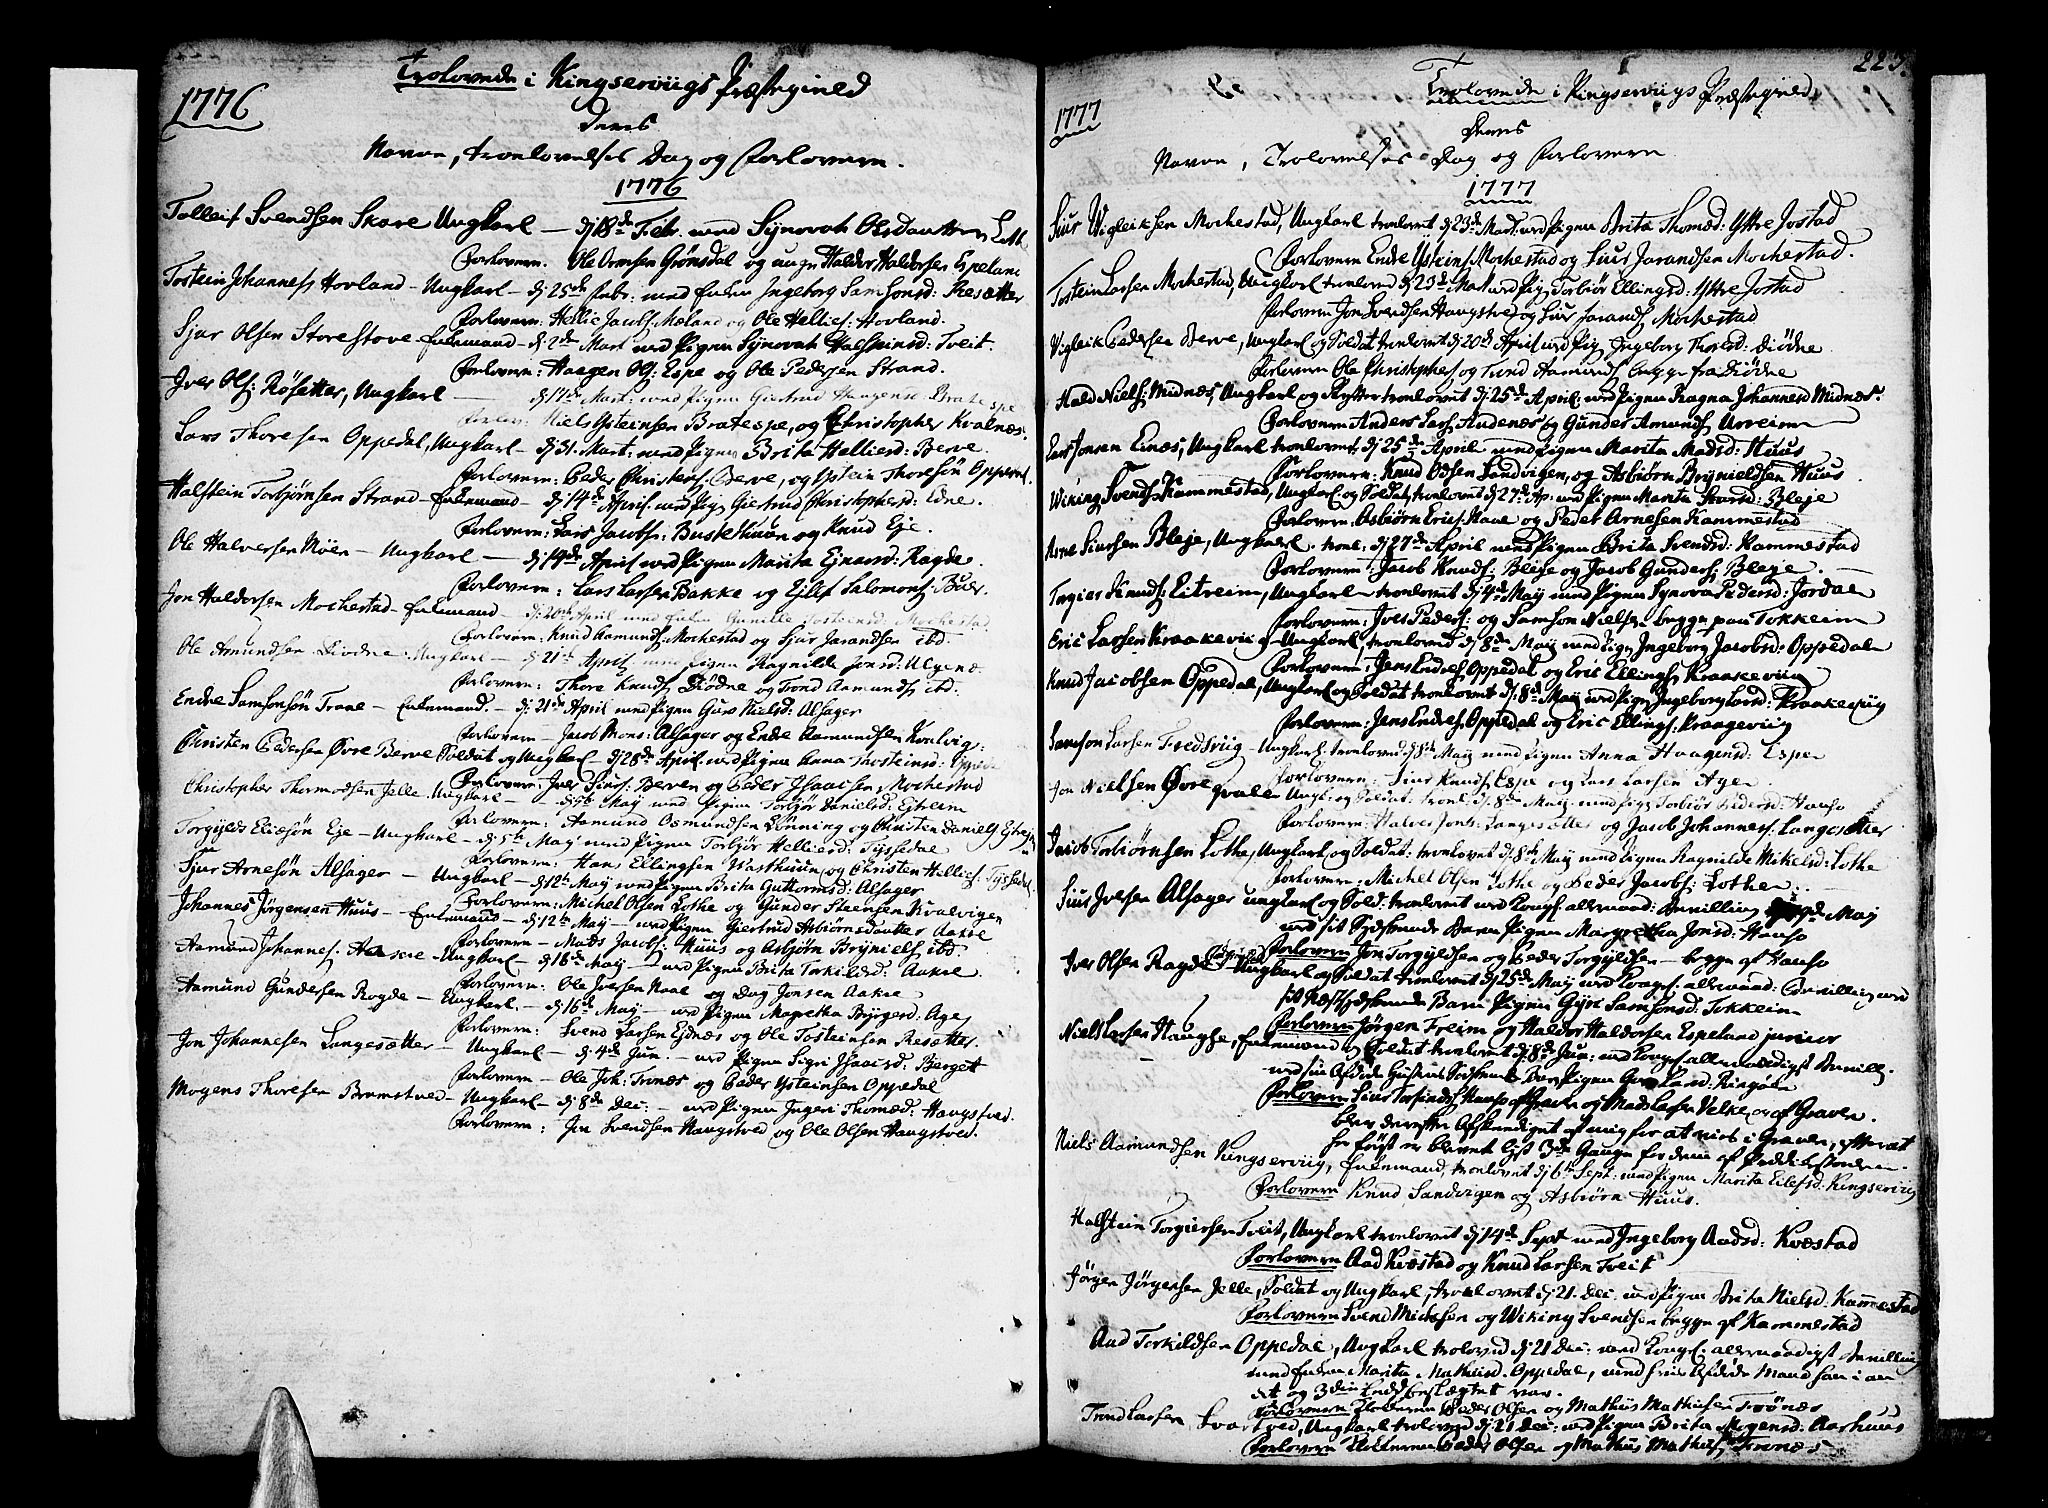 Trolovede i Kingserviigs Præstegield
1776
Deres
Navne, trolovelses Dag og Forlovere.
1776
Tolleif Svendsen Skare Ungkarl — dj 18de Febr. med Synovah Olsdautter Lothe
Forlovere. Ole Ormsen Grønsdal og unge Halder Haldorsen Espeland
Tostein Johannes: Hovland - Ungkarl - dj 25de Febr: med Enken Ingeborg Samsonsd: Resætter
Forlovern: Hellie Jacobs: Mæland og Ole Hellies: Hovland.
Sjur Olsen Storestove Enkemand - dj 2den Mart med Pigen Synovah Halsteinsd: Tveit.
Forlovern: Haagen Ols: Espe og Ole Pedersen Strand.
Iver Ols: Røsetter, Ungkarl — dj 17de Mart: med Pigen Giertrud Haagensd: Bratespe
Forlov: Niels Ysteinsen Bratespe, og Christopher Kvalnes.
Lars Thoresen Oppedal, Ungkarl - dj 31. Mart: med Pigen Brita Helliesd: Berve.
Forlovern: Peder Christens: Berve, og Ystein Thoresøn Oppedal.
Halstein Torbjørnsen Strand - Enkemand - dj 14de April med Pig: Giertrud Christophersd: Edne.
Forlovern: Lars Jacobs: Buskethuun og Knud Eje.
Ole Halversen Møen - Ungkarl — dj 14de April med Pigen Marita Ejnarsd: Ragde.
Forlovern: Lars Larsen Bakke og Ejlef Salomons: Buer.
Jon Haldorsen Mochestad - Enkemand - dj 20de April med Enken Gunille Tosteinsd: Mochestad.
Forlovern: Knud Aamunds: Mochestad og Sjur Jarandsen ibd.
Ole Amundsen Diødne - Ungkarl - dj 21de April med Pigen Ragnilde Jonsd: Ulgenæs
Forlovern: Thore Knuds: Diødne og Trond Aamunds: ibd.
Endre Samsonsøn Trane - Enkemand. - dj 21de April med Pigen Guro Nielsd: Alsager
Forlovern - Jacob Mons: Alsager og Endre Aamundsen Kvalvig:
Christen Pedersen Øvre Berve Soldat og Ungkarl - dj 28de April med Pigen Anna Thosteinsd:
Forlovern - Iver Siurs: Berven og Peder Isaachsen Mochestad
Christopher Thormodsen Jelle - Ungkarl - dj 5te May med Pigen Torbjør Danielsd: Ejtreim
Forlovern: Aamund Osmundsen Lønning og Christen Daniels: Ejtrejm
Torgylds Eliæsøn Eje - Ungkarl - dj 5te May med Pigen Torbjør Helliesd: Tyssedal
Forlovern: Hans Ellingsen Vasthuun og Christen Hellies: Tyssedal
Sjur Arnesøn Alsager - Ungkarl - dj 12te May med Pigen Brita Guttormsd: Alsager
Forlovern: Michel Olsen Lothe og Gunder Steensen Kvalvigen
Johannes Jørgensen Huus - Enkemand - dj 12te May - med Pigen Giertrud Asbiørnsdautter Aakre
Forlovern - Mads Jacobs: Huus og Asbjørn Brynields: ibd.
Aamund Johannes: Aakre - Ungkarl - dj 16de May - med Pigen Brita Torkildsd: Aakre.
Forlovern: Ole Iversen Naae og Dag Jonsen Aakre
Aamund Gundersen Rogde - Ungkarl - dj 16de May - med Pigen Magretha Byrgesd: Age
Forlovern: Svend Larsen Ejdnæs og Ole Tosteinsen Resætter.
Jon Johannesen Langesætter - Ungkarl - dj 4de Jun: - med Pigen Sigri Isaacsd: Berget
Forlovern - Ole Joh: Tronæs og Peder Ysteinsen Oppedal
Mogens Thoresen Bramstved - Ungkarl - dj 8de Dec: - med Pigen Ingeri Thomæd: Haugstved.
Forlovern: Jon Svendsen Haugstved og Ole Olsen Haugstved.
225.
Trolovede i Kingserviigs Præstegield
1777
Deres
Navne, Trolovelses Dag og Forlovern
1777
Siur Wigleiksen Mochestad, Ungkarl trolovet dj 23de Mart: med Pigen Brita Thomæd: Yttre Jostad
Forlovern Endre Ysteins: Mochestad og Siur Jarandsen Mochestad.
Tostein Larsen Mochestad, Ungkarl trolovet dj 23de Mart med Pig: Torbiør Ellingsd: Yttre Jostad
Forlovern Jon Svendsen Haugstved og Siur Jarands: Mochestad
Vigleik Pedersen Berve, Ungkarl og Soldat trolovet dj 20de April med Pig: Ingeborg Thoresd: Diødne.
Forlovern Ole Christophers: og Trond Aamunds: begge fra Diødne
Hald Niels: Midnæs, Ungkarl og Rytter trolovet dj 25de April: med Pigen Ragna Johannesd Midnæs.
Forlovern Anders Lars: Andenæs og Gunder Amunds: Urreim
Lars Jonsen Einæs, Ungkarl trolovet dj 25de April med Pigen Marita Madsd: Huus
Forlovern: Knud Odsen Sandvigen, og Asbiørn Brynieldsen Huus
Wiking Svends: Kammestad, Ungkarl og Soldat, trolovet dj 27de Apr: med Pigen Marita Siursd: Bleje
Forlovern: Asbiørn Erics: Naae og Peder Arnesen Kammestad
Arne Siursen Bleje, Ungkarl. trol: dj 27de April med Pigen Brita Svendsd: Kammestad
Forlovern: Jacob Knuds: Bleje og Jacob Gunders: Bleje.
Torgier Knuds: Eitreim, Ungkarl trolovet dj 4de Maÿ med Pigen Synova Pedersd: Jordal
Forlovern: Iver Peders: og Samson Nielsen begge paa Tokkeim
Eric Larsen Kraakeviig - Ungkarl trolovet dj 8de Maÿ med Pig: Ingeborg Jacobsd: Oppedal
Forlovern: Jens Endres: Oppedal og Eric Ellings: Kraakeviig
Knud Jacobsen Oppedal, Ungkarl og Soldat trolovet dj 8de Maÿ med Pig: Ingeborg Larsd: Kraakeviig
Forlovern: Jens Endres: Oppedal og Eric Ellings: Kraageviig
Samson Larsen Fredsviig - Ungkarl trolovet dj 8de Maÿ med Pigen Anna Haagensd: Espe
Forlovern: Siur Knuds: Espe og Lars Larsen Age
Jon Nielsen Øvre qvale Ungk: og Soldat: trol: dj 8de Maÿ med Pig: Torbiør Pedersd: Hauso
Forlovern: Halver Jons: Langesætter og Jacob Johannes: Langesætter
Jacob Torbiørnsen Lothe, Ungkarl og Soldat: trolovet dj 8de Maÿ med Pigen Ragnilde Mikelsd: Lothe
Forlovern: Michel Olsen Lothe og Peder Jacobs: Lothe.
Siur Iversen Alsager ungkarl og Sold: trolovet med Kongl: allernaad: Bevilling dj 9de Maÿ
med sit Sydskende Barn Pigen Margretha Jonsd: Hauso
Forlovern Jon Torgyldsen og Peder Torgyldsen - begge af Hauso
Iver Olsen Ragde Ungkarl og Soldat trolovet dj 25de Maÿ med Kongl: allernaad: Bevilling med
sit Næstsydskende Barn Pigen Gyri Samsonsd: Tokkeim
Forlovern Jørgen Freim og Halder Haldorsen Espeland junior
Niels Larsen Haughe, Enkemand og Soldat trolovet dj 8de Jun: med Kongl: allernaadigst Bevill:
med sin Afdøde Hustrues Sødskende Barn Pigen Guro Larsd: Ringøen
Forlovern Siur Torfinds: Hauso af Graven og Mads Larsen Velke, or af Graven.
blev derefter Afskediget af mig for at vies i Graven, efterat
han først er blevet lyst 3de Gange for dem af Prædikestolen.
Niels Aamundsen Kingserviig, Enkemand, trolovet dj 6te Sept: med Pigen Marita Eilefsd: Kingserviig
Forlovern Knud Sandvigen og Asbiørn Huus.
Halstein Torgiersen Tveit, Ungkarl trolovet dj 14de Sept med Ingeborg Aadsd: Kvæstad
Forlovern Aad Kvæstad og Knud Larsen Tveit
Jørgen Jørgensen Jelle, Soldat og Ungkarl, trolovet dj 21. Dec. med Pigen Brita Nielsd: Kammestad
Forlovern Svend Mickelsen og Wiking Svendsen begge af Kammestad
Aad Torkildsen Oppedal, Ungkarl trolovet dj 21 Dec: med Kongl: allernaadigst Bevilling
med Enken Marita Mathiisd. Oppedal, med hvis Afdøde Mand han i an
det og 3die Leed beslægtet var.
Forlovern Klokkeren Peder Olsen og Mathiis Mathiesen Trønæs
Trond Larsen Svartved, Ungkarl trolovet dj 21 Dec: med Pigen Brita Mogensd: Aarhuus
Forlovern Klokkeren Peder Olsen og Mathiis Mathies: Tronæs